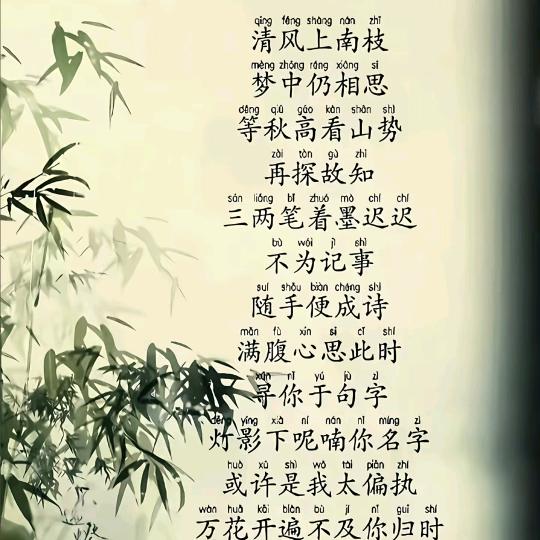 qīng fēng shàng nán zhī
清风上南枝
mèng zhōng réng xiāng sī
梦中仍相思
děng qiū gāo kàn shān shì
等秋高看山势
zài tàn gù zhī
再探故知
sān liǎng bǐ zhuó mò chí chí
三两笔着墨迟迟
bù wéi jì shì
不为记事
suí shǒu biàn chéng shī
随手便成诗
mǎn fù xīn sī cǐ shí
满腹心思此时
xún nǐ yú jù zì
寻你于句字
dēng yǐng xià ní nán nǐ míng zì
灯影下呢喃你名字
huò xǔ shì wǒ tài piān zhí
或许是我太偏执
wàn huā kāi biàn bù jí nǐ guī shí
万花开遍不及你归时